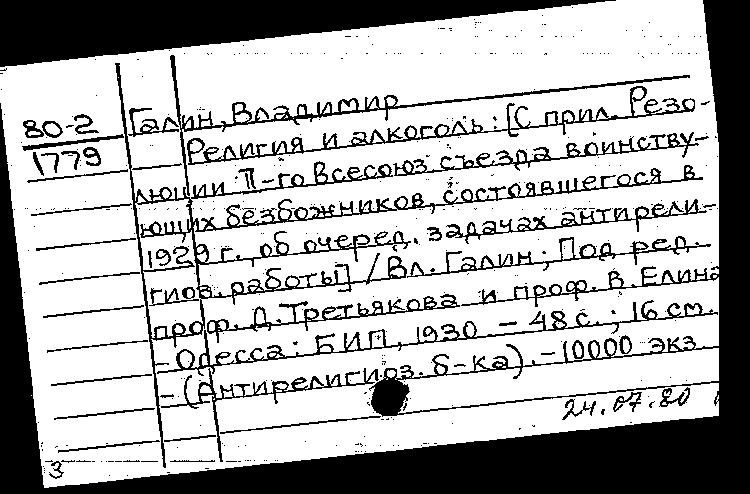 80-2 Галин, Владимир
1779 Религия и алкоголь: [С прил. Резо-
люции II-го Всесоюз съезда воинству-
ющих безбожников, состоявшегося в
1929 г., об очеред. задачах антирели-
гиоз. работы] / Вл. Галин; Под ред.
проф. Д. Третьякова и проф. В. Елина
- Одесса: БИП, 1930 - 48 с.; 16 см.
- (Антирелигиоз. б-ка). - 10000 экз.
24.07.80
3